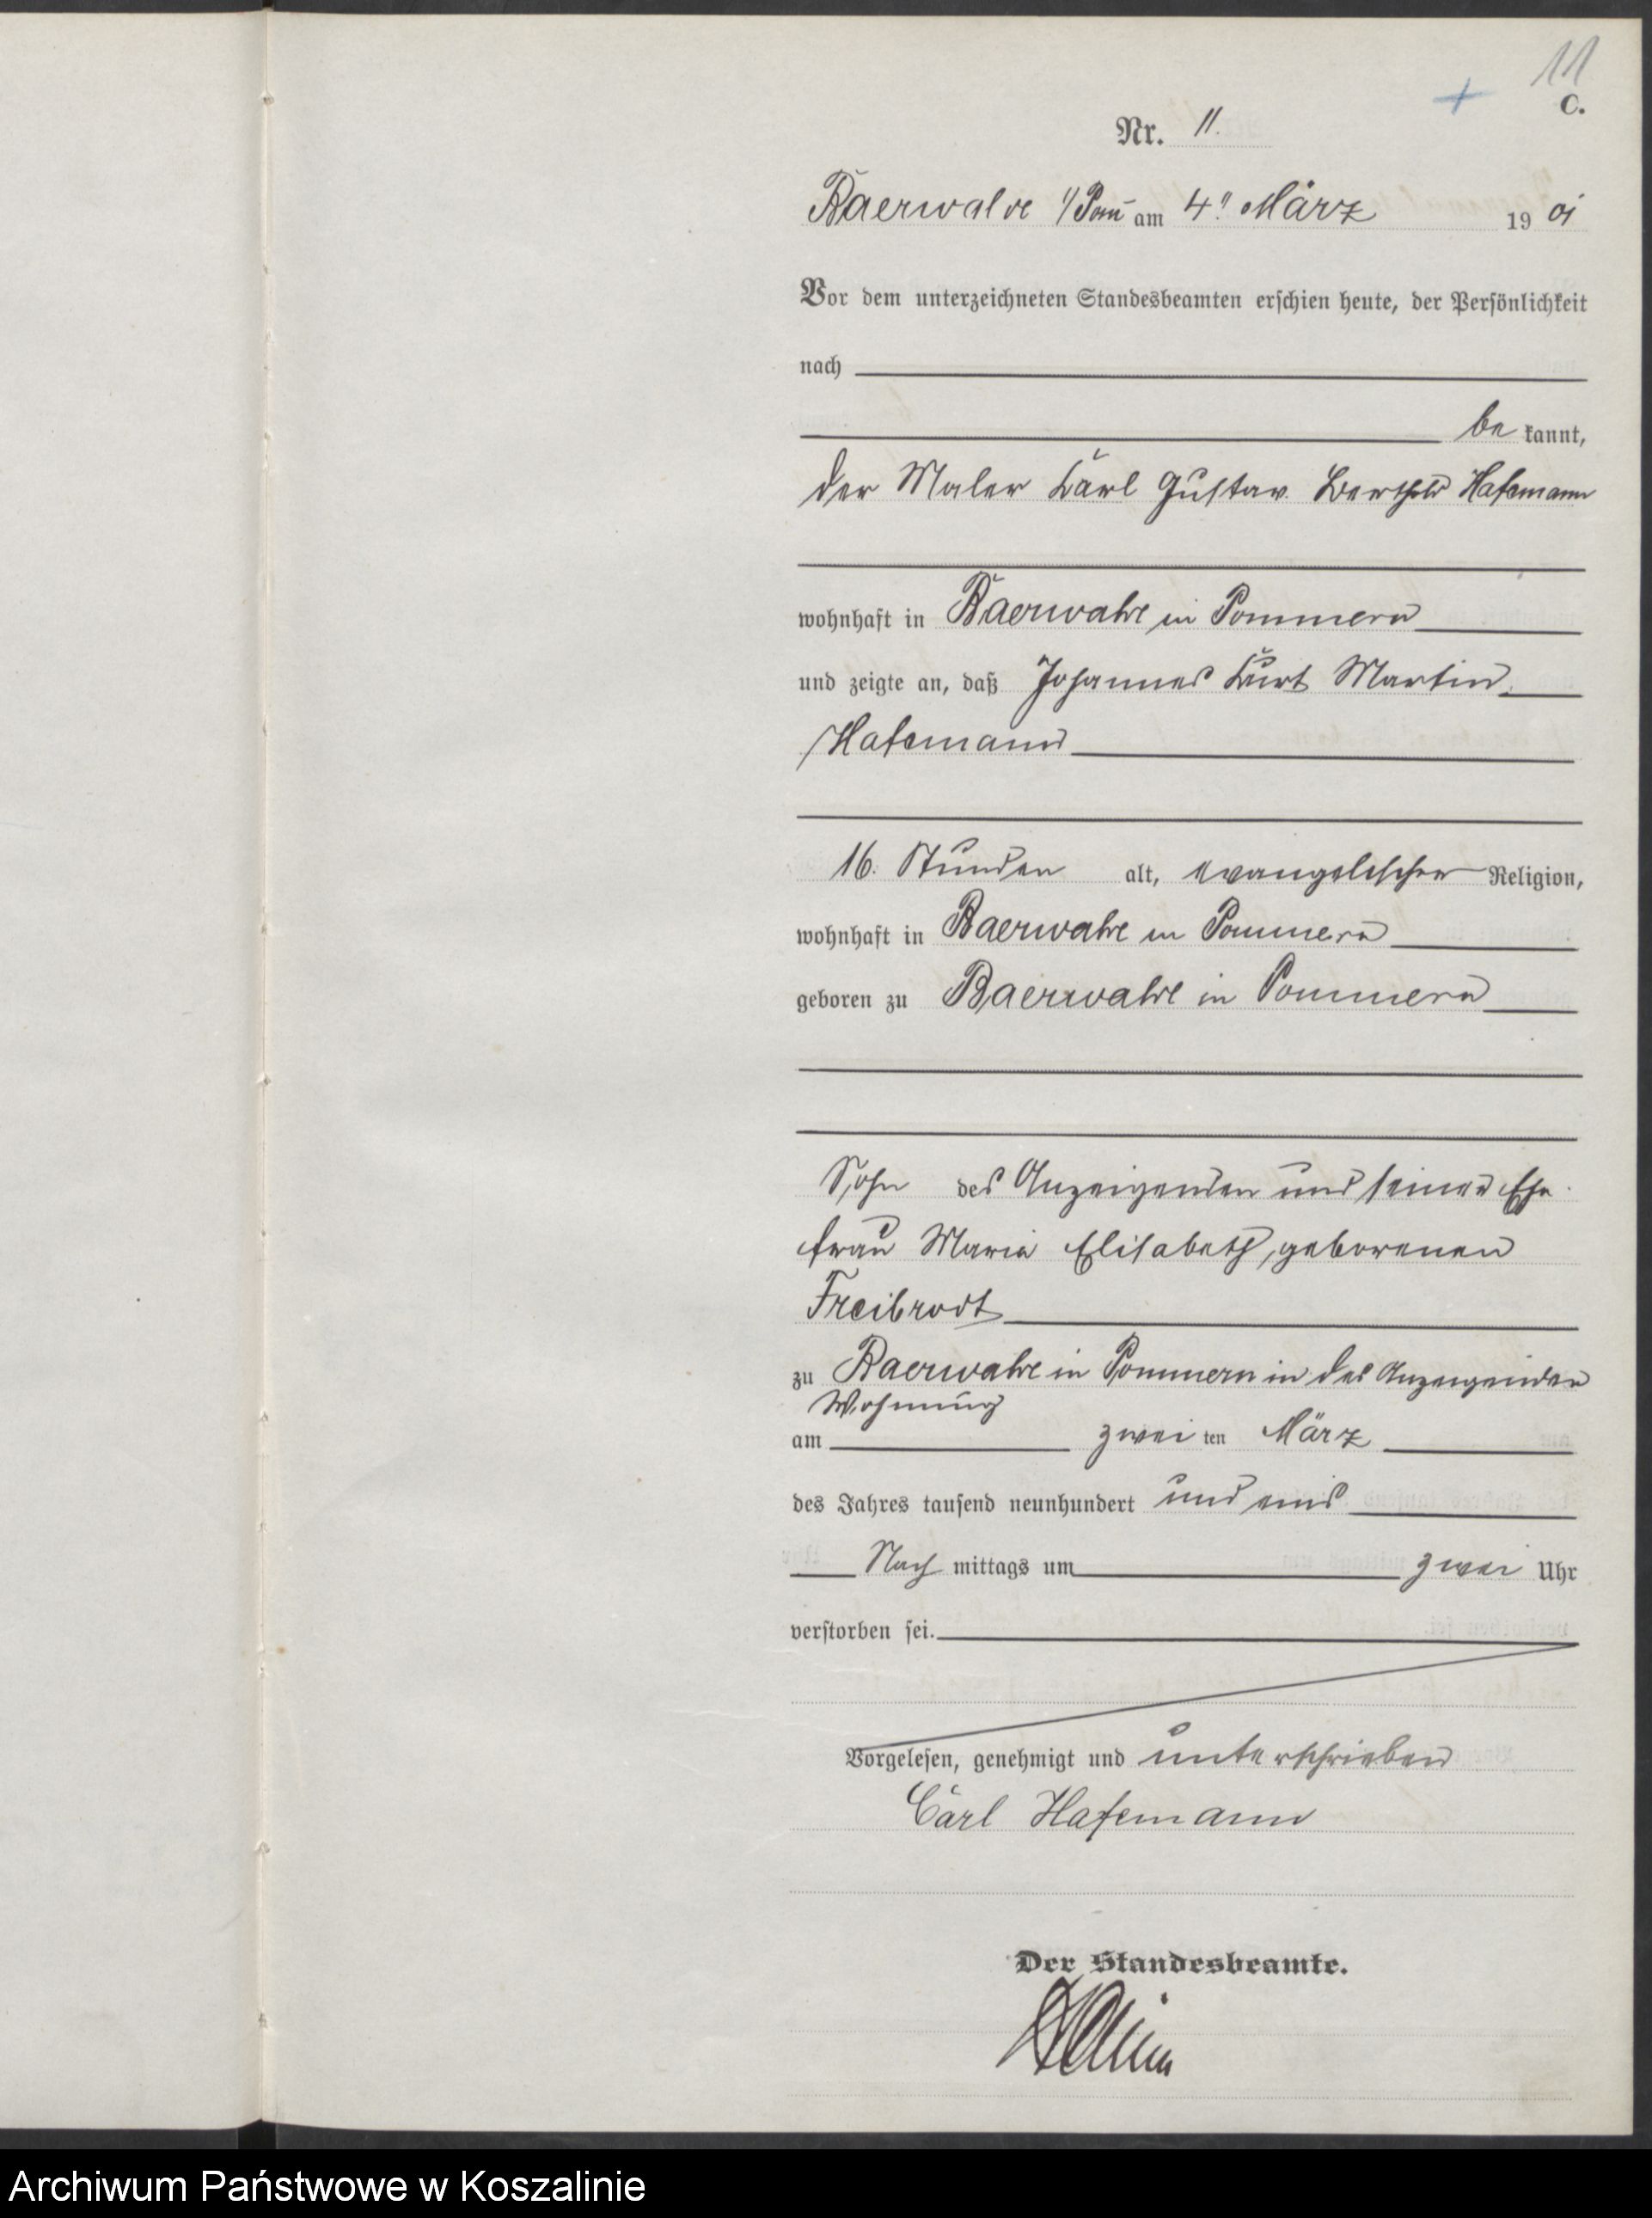 11
C.
Nr. 11.
Baerwalde i/Pom am 4. März 1901
Vor dem unterzeichneten Standesbeamten erschien heute, der Persönlichkeit
nach
be kannt,
der Maler Karl Gustav Berthold Hafemann
wohnhaft in Baerwalde in Pommern
und zeigte an, daß Johannes Kurt Martin
Hafemann
16 Stunden alt, evangelischer Religion,
wohnhaft in Baerwalde in Pommern
geboren zu Baerwalde in Pommern
Sohn des Anzeigenden und seiner Ehe
frau Maria Elisabeth, geborenen
Freibrodt
zu Baerwalde in Pommern in des Anzeigenden
Wohnung
am zwei ten März
des Jahres tausend neunhundert und eins
Nach mittags um zwei Uhr
verstorben sei.
Vorgelesen, genehmigt und unterschrieben
Carl Hafemann
Der Standesbeamte.
Archiwum Państwowe w Koszalinie